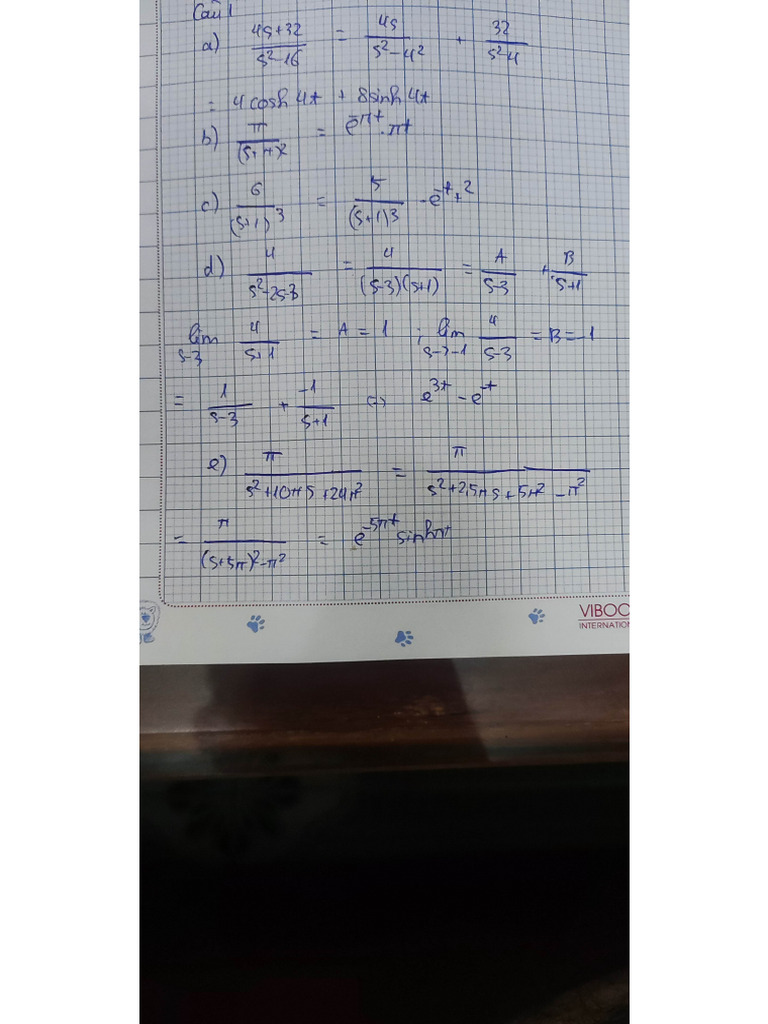 Câu 1
a) (4s+32)/(s²-16) = 4s/(s²-4²) + 32/(s²-4)
= 4cosh4t + 8sinh4t
b) π/(s+π)² = e^-πt . πt
c) 6/(s+1)³ = 5/(s+1)3 - e^-t t²
d) 4/(s²-2s-3) = 4/((s-3)(s+1)) = A/(s-3) + B/(s+1)
lim s-3 4/(s+1) = A = 1 ; lim s->-1 4/(s-3) = B = -1
= 1/(s-3) + -1/(s+1) <=> e^3t - e^-t
e) π/(s²+10πs+24π²) = π/(s²+2.5πs+5π²-π²)
= π/((s+5π)²-π²) = e^-5πt sinhπt
VIBOO
INTERNATION